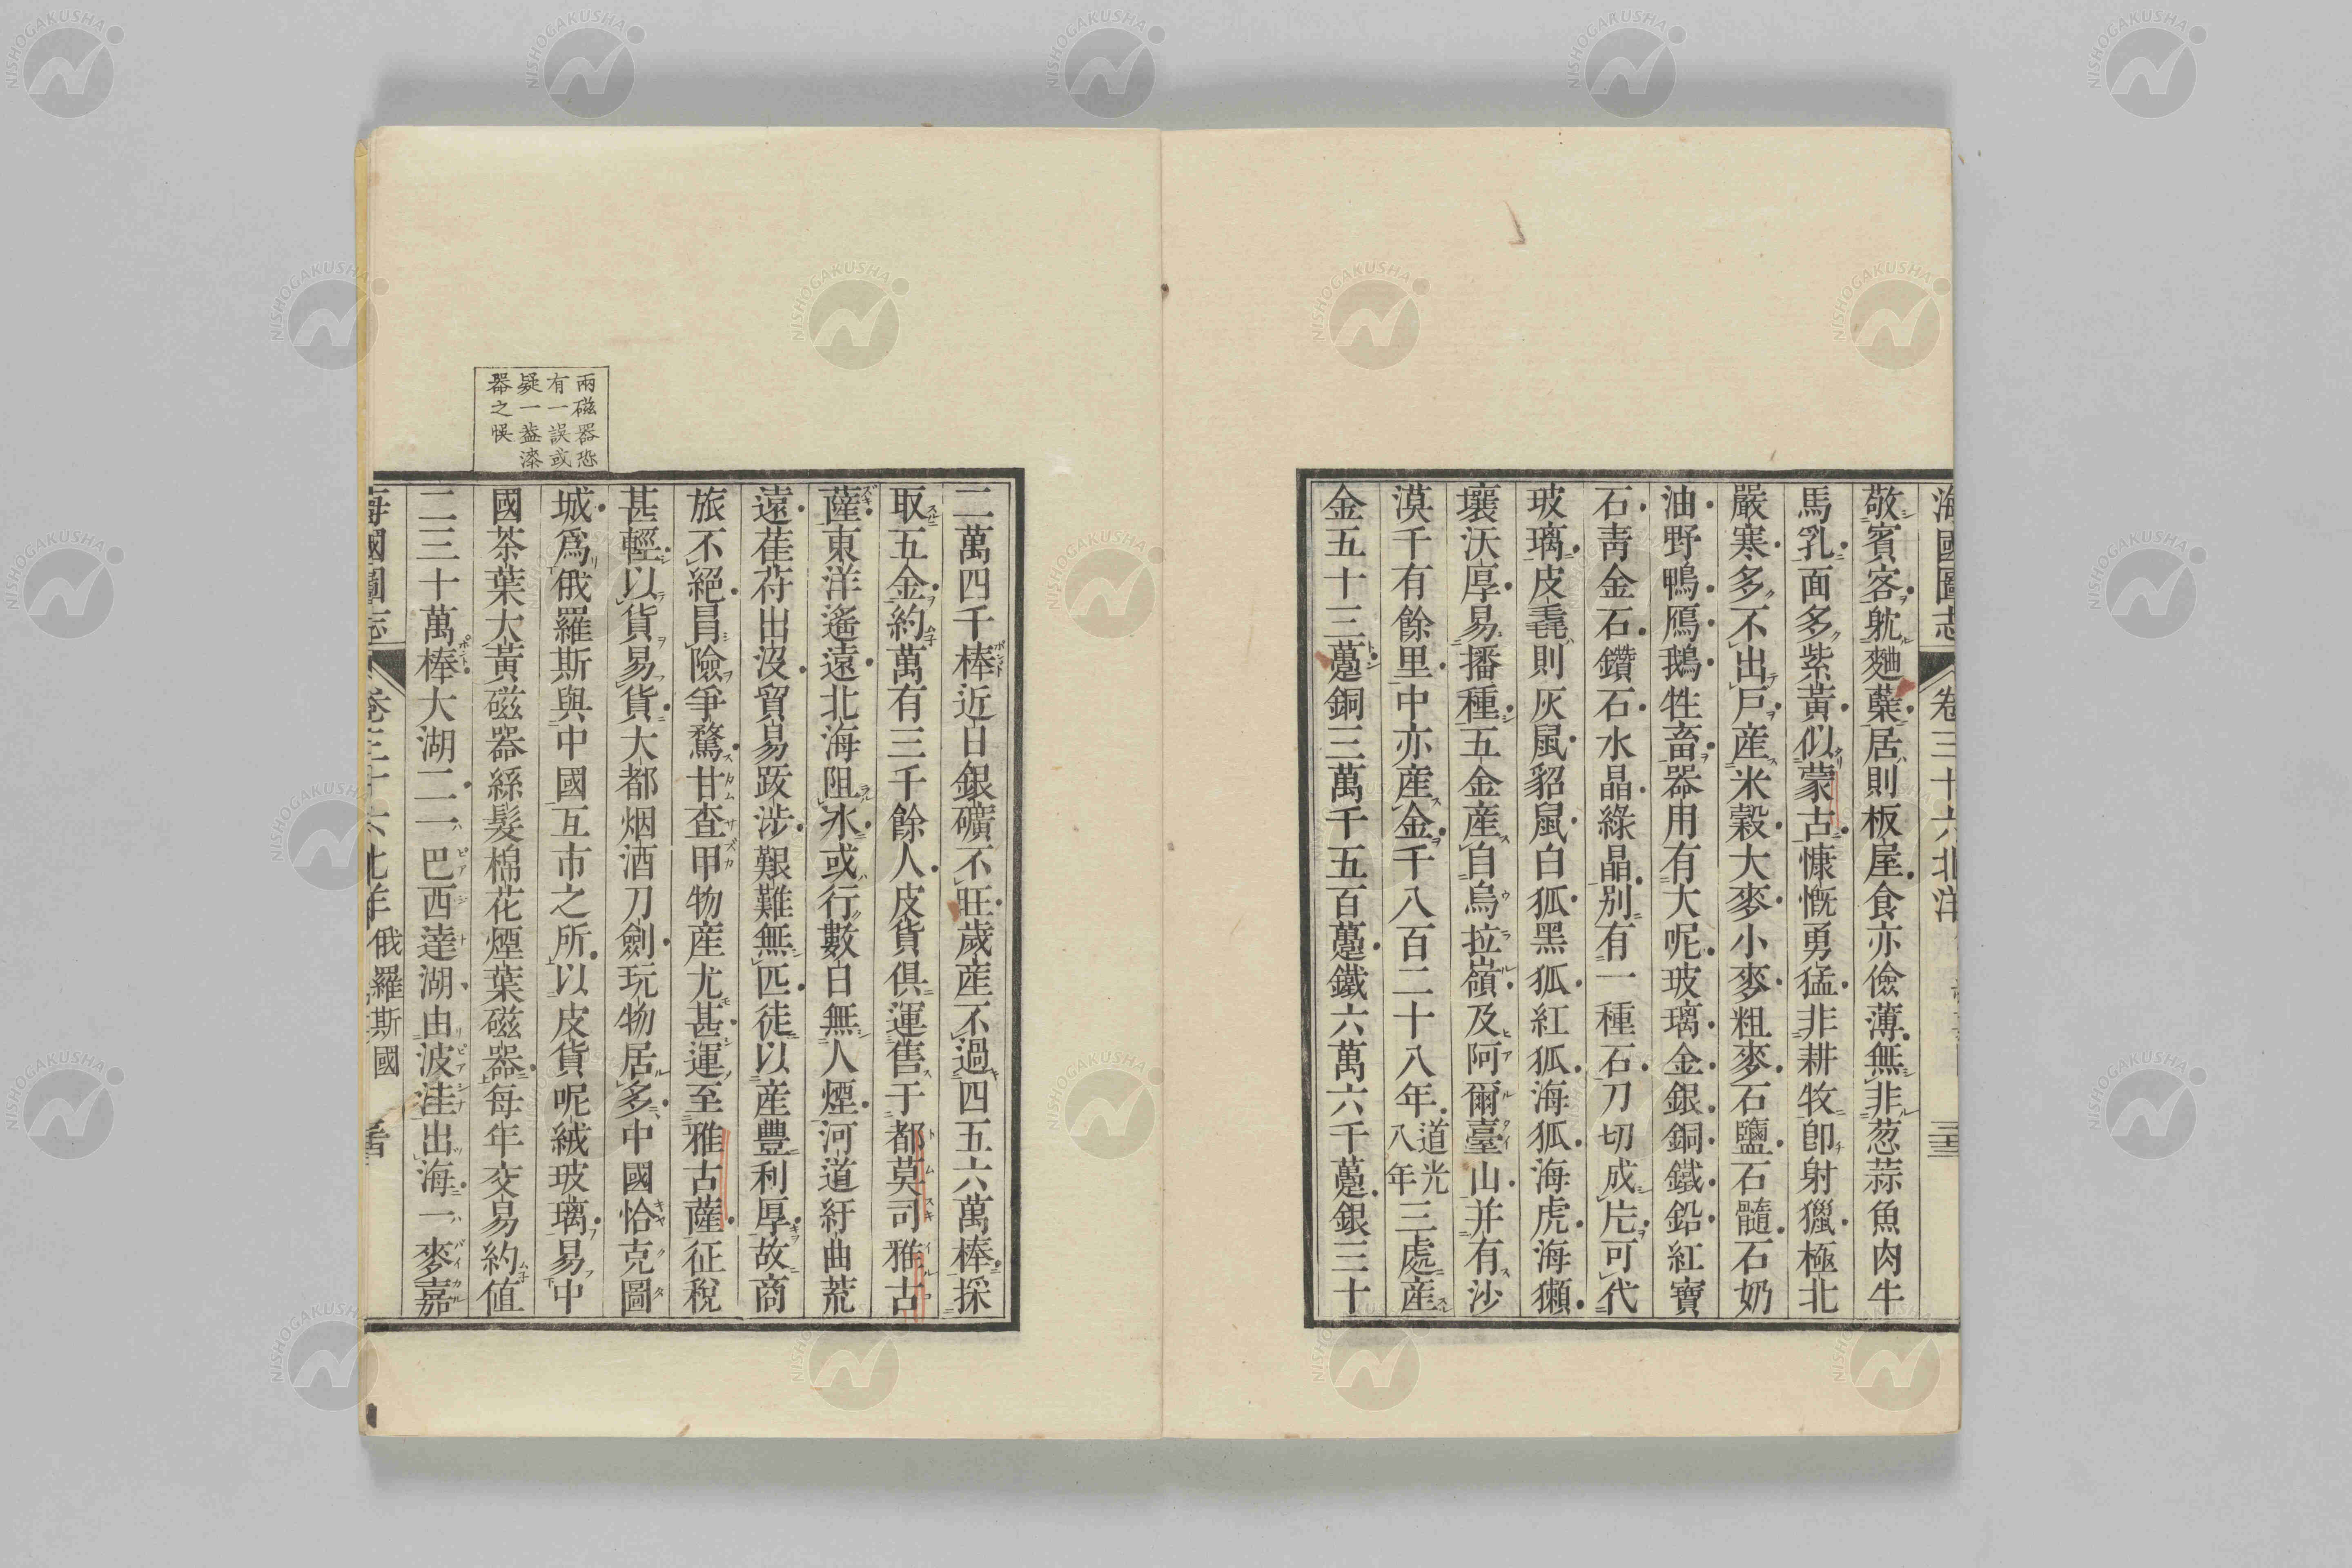 海國圖志 卷三十六北洋
敬賓客躭麯蘖居則板屋食亦儉薄無非葱蒜魚肉牛
馬乳面多紫黃似蒙古慷慨勇猛非耕牧卽射獵極北
嚴寒多不出戶産米穀大麥小麥粗麥石鹽石髓石奶
油野鴨鴈鵝牲畜器用有大呢玻璃金銀銅鐵鉛紅寶
石靑金石鑽石水晶綠晶別有一種石刀切成片可代
玻璃皮毳則灰鼠貂鼠白狐黑狐紅狐海狐海虎海獺
壤沃厚易播種五金産自烏拉嶺及阿爾臺山并有沙
漠千有餘里中亦産金千八百二十八年道光八年三處産
金五十三躉銅三萬千五百躉鐵六萬六千躉銀三十
二萬四千棒近日銀礦不旺歲産不過四五六萬棒採
取五金約萬有三千餘人皮貨俱運售于都莫司雅古
薩東洋遙遠北海阻水或行數日無人煙河道紆曲荒
遠萑苻出沒貿易跋涉艱難無匹徒以産豐利厚故商
旅不絕冒險爭騖甘查甲物産尤甚運至雅古薩征稅
甚輕以貨易貨大都烟酒刀劍玩物居多中國恰克圖
城爲俄羅斯與中國互市之所以皮貨呢絨玻璃易中
國茶葉大黃磁器絲髮棉花煙葉磁器每年交易約值
二三十萬棒大湖二一巴西達湖由波洼出海一麥嘉
海國圖志 卷三十六北洋 俄羅斯國
兩磁器恐
有一誤或
疑一蓋漆
器之悞
NISHOGAKUSHA